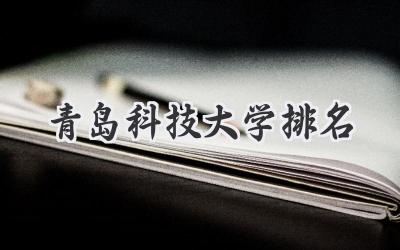 青岛科技大学排名